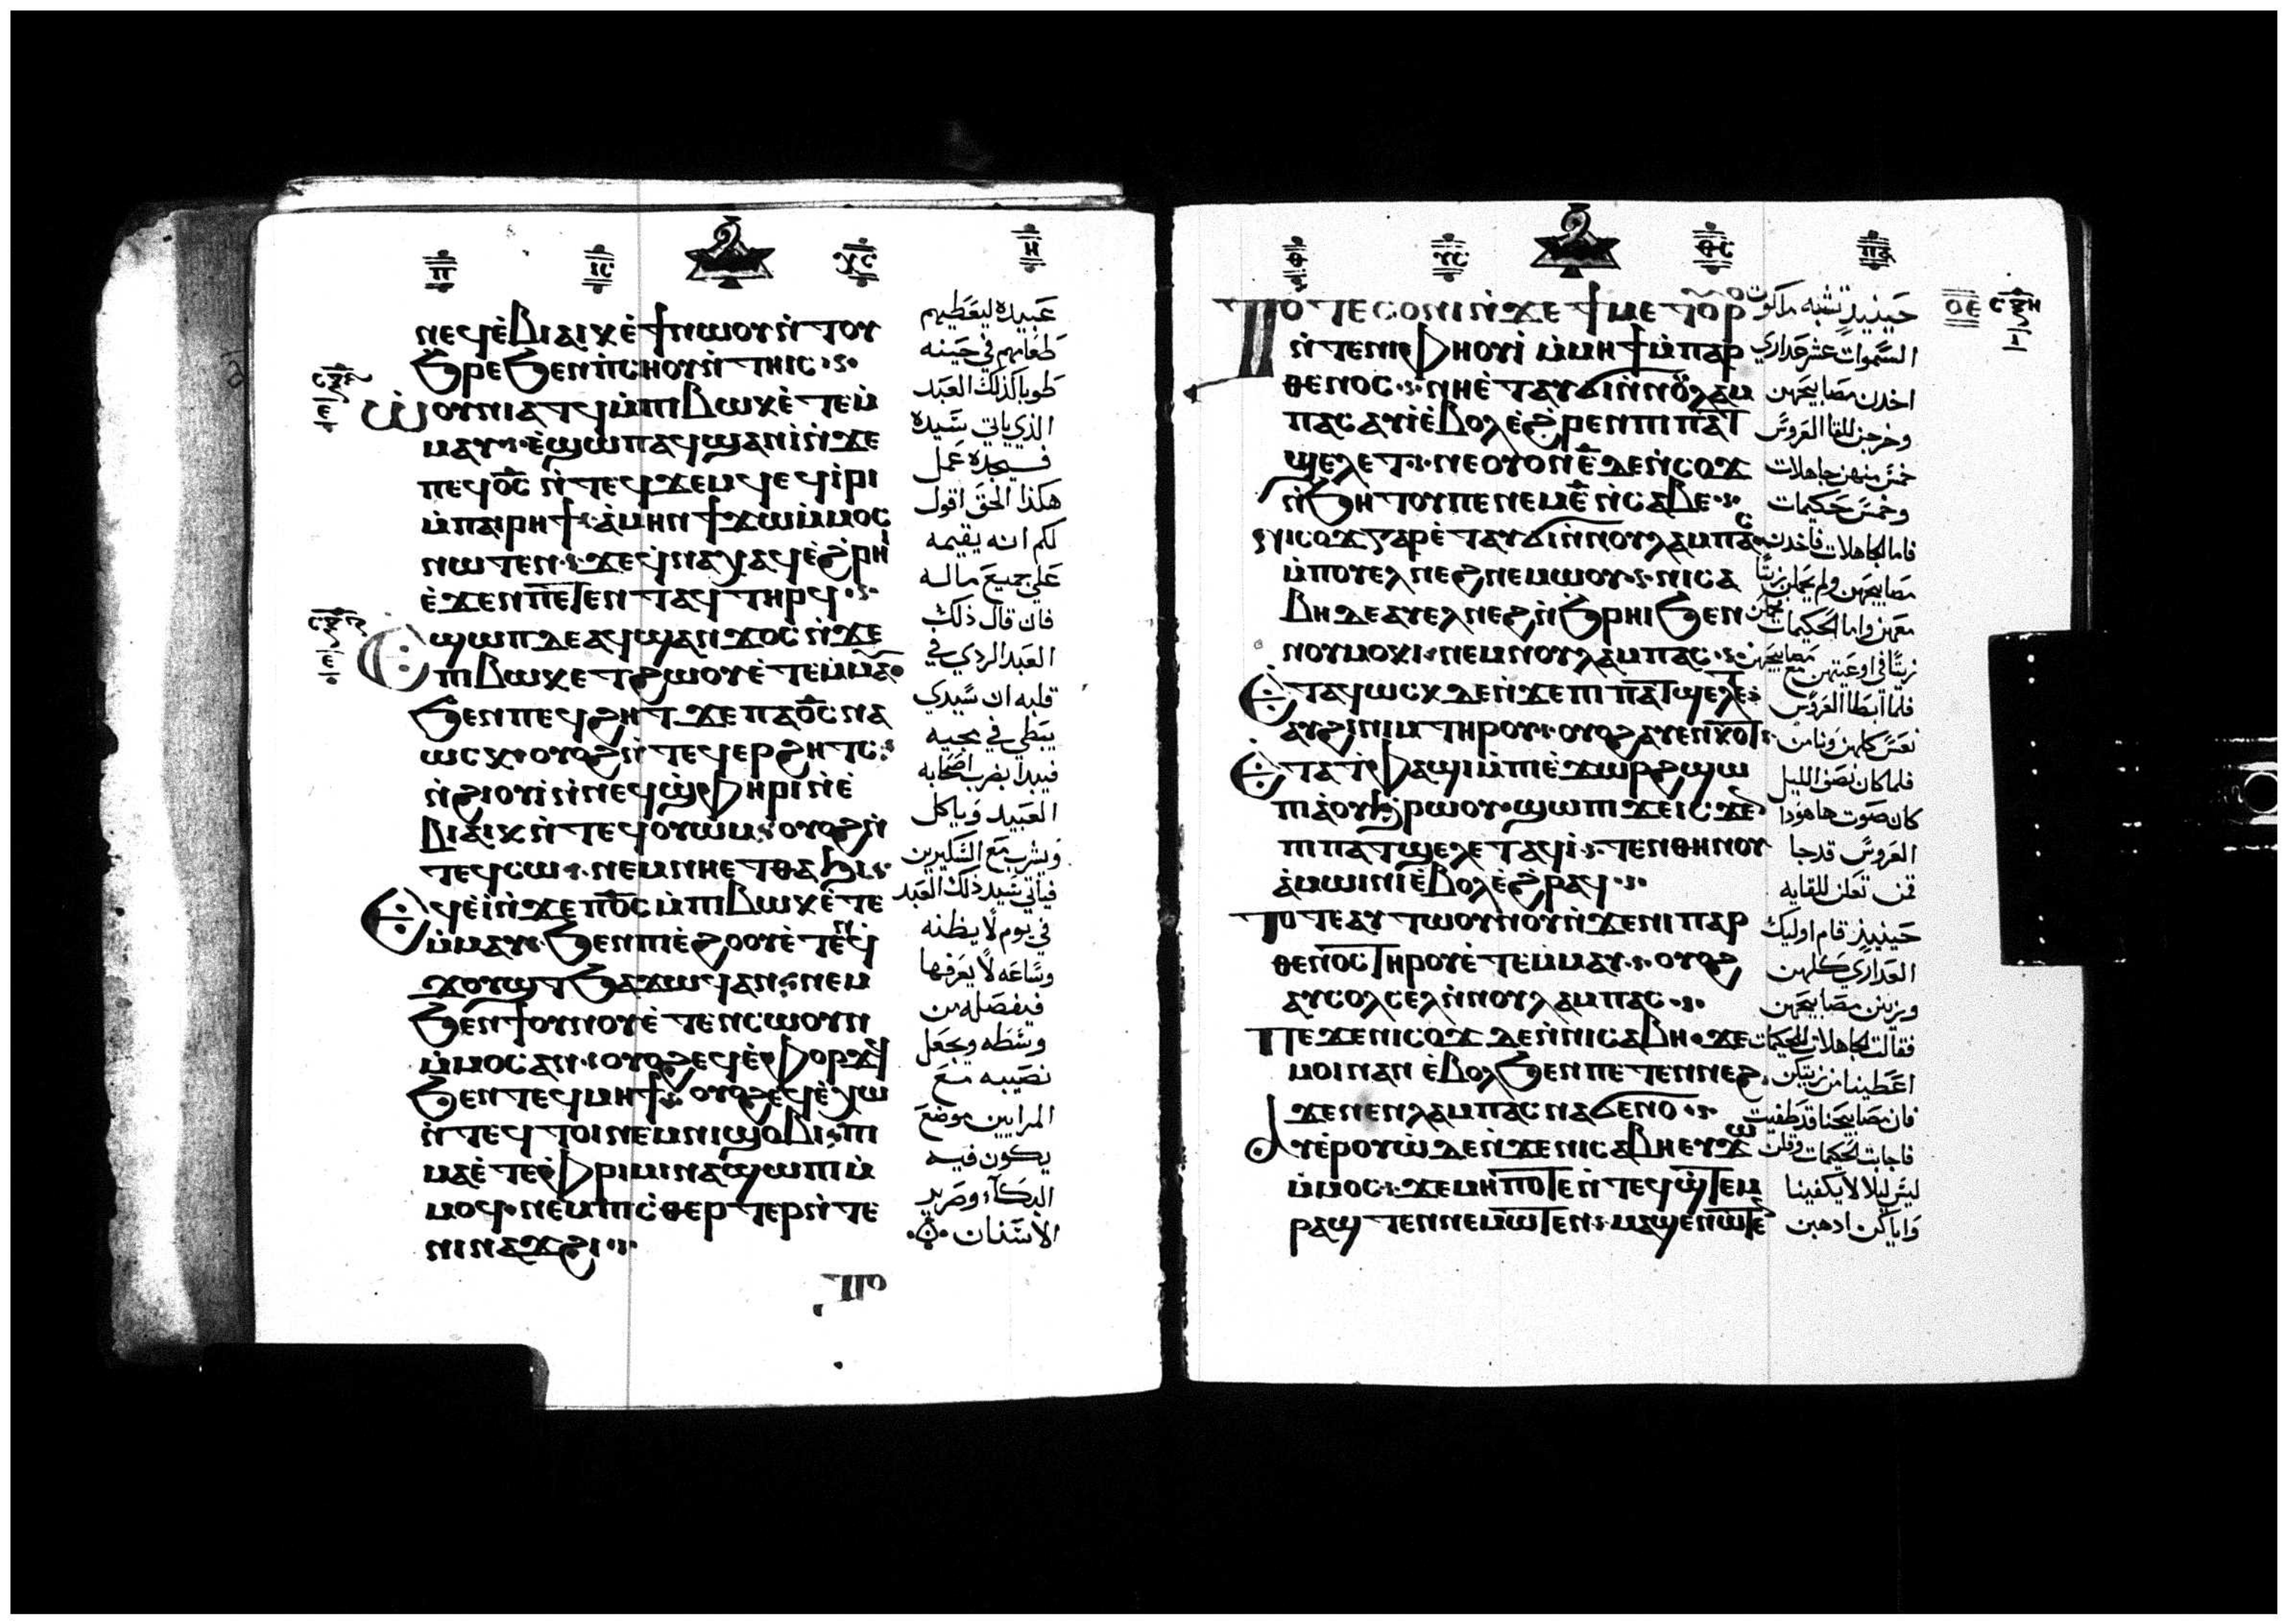 ⲛⲉϥⲉⲃⲓⲁⲓⲕ ⲉϯⲛⲱⲟⲩ ⲛ̀ⲧⲟⲩ
ϧⲣⲉ ϧⲉⲛ ⲡⲥⲏⲟⲩ ⲛ̀ⲧⲏⲓⲥ
ⲱⲟⲩⲛⲓⲁⲧϥ ⲙ̀ⲡⲓⲃⲱⲕ ⲉ̀ⲧⲉⲙ̀
ⲙⲁⲩ ⲉ̀ϣⲱⲡ ⲁϥϣⲁⲛⲓ̀ ⲛ̀ϫⲉ
ⲡⲉϥⲟ̅ⲥ̅ ⲛ̀ⲧⲉϥϫⲉⲙϥ ⲉϥⲓ̀ⲣⲓ
ⲙ̀ⲡⲁⲓⲣⲏϯ ⲁ̀ⲙⲏⲛ ϯϫⲱ ⲙ̀ⲙⲟⲥ
ⲛⲱⲧⲉⲛ ϫⲉ ϥ̀ⲛⲁⲭⲁϥ ⲉ̀ϩ̀ⲣⲏⲓ
ⲉ̀ϫⲉⲛ ⲡⲉⲧⲉⲛⲧⲁϥ ⲧⲏⲣϥ
ⲉϣⲱⲡ ⲇⲉ ⲁϥϣⲁⲛϫⲟⲥ ⲛ̀ϫⲉ
ⲡⲓⲃⲱⲕ ⲉⲧϩⲱⲟⲩ ⲉ̀ⲧⲉⲙ̀ⲙⲁ
ϧⲉⲛ ⲡⲉϥϩⲏⲧ ϫⲉ ⲡⲁⲟ̅ⲥ̅ ⲛⲁ
ⲱⲥⲕ ⲟⲩⲟϩ ⲛ̀ⲧⲉϥⲉⲣϩⲏⲧⲥ
ⲛ̀ϩⲓⲟⲩⲓ̀ ⲛ̀ⲛⲉϥϣ̀ⲫⲏⲣⲓ ⲛ̀ⲉ̀
ⲃⲓⲁⲓⲕ ⲛ̀ⲧⲉϥⲟⲩⲱⲙ ⲟⲩⲟϩ ⲛ̀
ⲧⲉϥⲥⲱ ⲛⲉⲙ ⲛⲏⲉⲧⲑⲁϧⲓ
ⲉϥⲉⲓ̀ ⲛ̀ϫⲉ ⲡⲟ̅ⲥ̅ ⲙ̀ⲡⲓⲃⲱⲕ ⲉ̀ⲧⲉ
ⲙ̀ⲙⲁⲩ ϧⲉⲛ ⲡⲓⲉ̀ϩⲟⲟⲩ ⲉ̀ⲧⲉⲛϥ
ϫⲟⲩϣⲧ ϧⲁϫⲱϥ ⲁⲛ ⲛⲉⲙ
ϧⲉⲛ ϯⲟⲩⲛⲟⲩ ⲉ̀ⲧⲉⲛϥⲥⲱⲟⲩⲛ
ⲙ̀ⲙⲟⲥ ⲁⲛ ⲟⲩⲟϩ ⲉϥⲉ̀ⲫⲟⲣϫϥ
ϧⲉⲛ ⲧⲉϥⲙⲏϯ ⲟⲩⲟϩ ⲉϥⲉ̀ⲭⲱ
ⲛ̀ⲧⲉϥⲧⲟⲓ ⲛⲉⲙ ⲛⲓϣⲟⲃⲓ ⲡⲓ
ⲙⲁ ⲉ̀ⲧⲉ ⲫ̀ⲣⲓⲙⲓ ⲛⲁϣⲱⲡⲓ ⲙ̀
ⲙⲟϥ ⲛⲉⲙ ⲡⲓⲥ̀ⲑⲉⲣⲧⲉⲣ ⲛ̀ⲧⲉ
ⲛⲓⲛⲁϫϩⲓ
عبيده ليعطيهم
طعامهم في حينه
طوبا لذلك العبد
الذي ياتي سيده
فيجده عمل
هكذا الحق اقول
لكم انه يقيمه
علي جميع ماله
فان قال ذلك
العبد الردي في
قلبه ان سيدي
يبطي في مجيه
فيبدا بضرب اصحابه
العبيد وياكل
ويشرب مع السكيرين
فياتي سيد ذلك العبد
في يوم لا يظنه
وساعه لا يعرفها
فيفصله من
وسطه ويجعل
نصيبه مع
المرايين موضع
يكون فيه
البكاء وصرير
الاسنان
ⲧⲟⲧⲉ ⲥⲟⲛⲓ ⲛ̀ϫⲉ ϯⲙⲉⲧⲟⲩⲣⲟ
ⲛ̀ⲧⲉ ⲛⲓⲫⲏⲟⲩⲓ̀ ⲙ̀ⲙⲏϯ ⲙ̀ⲡⲁⲣ
ⲑⲉⲛⲟⲥ ⲛⲏⲉ̀ⲧⲁⲩϭⲓ ⲛ̀ⲛⲟⲩⲗⲁⲙ
ⲡⲁⲥ ⲁⲩⲓ̀ ⲉ̀ⲃⲟⲗ ⲉ̀ϩ̀ⲣⲉⲛ ⲡⲓⲡⲁⲧ
ϣⲉⲗⲉⲧ ⲛⲉ ⲟⲩⲟⲛ ⲉ̅ ⲇⲉ ⲛ̀ⲥⲟϫ
ⲛ̀ϧⲏⲧⲟⲩ ⲡⲉ ⲛⲉⲙ ⲉ̅ ⲛ̀ⲥⲁⲃⲉ
ⲛⲓⲥⲟϫ ⲅⲁⲣ ⲉ̀ⲧⲁⲩϭⲓ ⲛ̀ⲛⲟⲩⲗⲁⲙⲡⲁⲥ
ⲙ̀ⲡⲟⲩⲉⲗ ⲛⲉϩ ⲛⲉⲙⲱⲟⲩ ⲛⲓⲥⲁ
ⲃⲏ ⲇⲉ ⲁⲩⲉⲗ ⲛⲉϩ ⲛ̀ϧⲣⲏⲓ ϧⲉⲛ
ⲛⲟⲩⲙⲟⲕⲓ ⲛⲉⲙ ⲛⲟⲩⲗⲁⲙⲡⲁⲥ
ⲉⲧⲁϥⲱⲥⲕ ⲇⲉ ⲛ̀ϫⲉ ⲡⲓⲡⲁⲧϣⲉⲗⲉⲧ
ⲁⲩϩⲓⲛⲓⲙ ⲧⲏⲣⲟⲩ ⲟⲩⲟϩ ⲁⲩⲉⲛⲕⲟⲧ
ⲉⲧⲁ ⲧ̀ⲫⲁϣⲓ ⲙ̀ⲡⲓⲉ̀ϫⲱⲣϩ ϣⲱ
ⲡⲓ ⲁ̀ ⲟⲩϧ̀ⲣⲱⲟⲩ ϣⲱⲡⲓ ϫⲉ ⲓⲥϫⲉ
ⲡⲓⲡⲁⲧϣⲉⲗⲉⲧ ⲁϥⲓ̀ ⲧⲉⲛⲑⲏⲛⲟⲩ
ⲁ̀ⲙⲱⲓⲛⲓ ⲉ̀ⲃⲟⲗ ⲉ̀ϩ̀ⲣⲁϥ
ⲧⲟⲧⲉ ⲁⲩⲧⲱⲟⲩⲛⲟⲩ ⲛ̀ϫⲉ ⲛⲓⲡⲁⲣ
ⲑⲉⲛⲟⲥ ⲧⲏⲣⲟⲩ ⲉ̀ⲧⲉⲙⲙⲁⲩ ⲟⲩⲟϩ
ⲁⲩⲥⲟⲗⲥⲉⲗ ⲛ̀ⲛⲟⲩⲗⲁⲙⲡⲁⲥ
ⲡⲉϫⲉ ⲛⲓⲥⲟϫ ⲇⲉ ⲛ̀ⲛⲓⲥⲁⲃⲏ ϫⲉ
ⲙⲟⲓ ⲛⲁⲛ ⲉ̀ⲃⲟⲗ ϧⲉⲛ ⲡⲉⲧⲉⲛⲛⲉϩ
ϫⲉ ⲛⲉⲛⲗⲁⲙⲡⲁⲥ ⲛⲁϭⲉⲛⲟ
ⲁⲩⲉ̀ⲣⲟⲩⲱ̀ ⲇⲉ ⲛ̀ϫⲉ ⲛⲓⲥⲁⲃⲏ ⲉⲩϫⲱ
ⲙ̀ⲙⲟⲥ ϫⲉ ⲙⲏⲡⲟⲧⲉ ⲛ̀ⲧⲉϥϣ̀ⲧⲉⲙ
ⲣⲁϣⲧⲉⲛ ⲛⲉⲙⲱⲧⲉⲛ ⲙⲁϣⲉⲛⲱⲧⲉ
حينيذ تشبه ملكوت
السموات عشر عداري
اخدن مصابيحهن
وخرجن للقا العروس
خمس منهن جاهلات
وخمس حكيمات
فاما الجاهلات فاخدن
مصابيحهن ولم يحملن زيتا
معهن واما الحكيمات
زيتا في اوعيتهن مع مصابيحهن
فلما ابطا العروس
نعس كلهن ونامن
فلما كان نصف الليل
كان صوت هاهودا
العروس قد جا
قمن تعلن للقايه
حينيذ قام اوليك
العداري كلهن
وزينن مصابيحهن
فقالت الجاهلات للحكيمات
اعطينا من زيتكن
فان مصابيحنا قد طفيت
فاجابت الحكيمات وقلن
ليس ليلا لا يكفينا
واياكن ادهبن